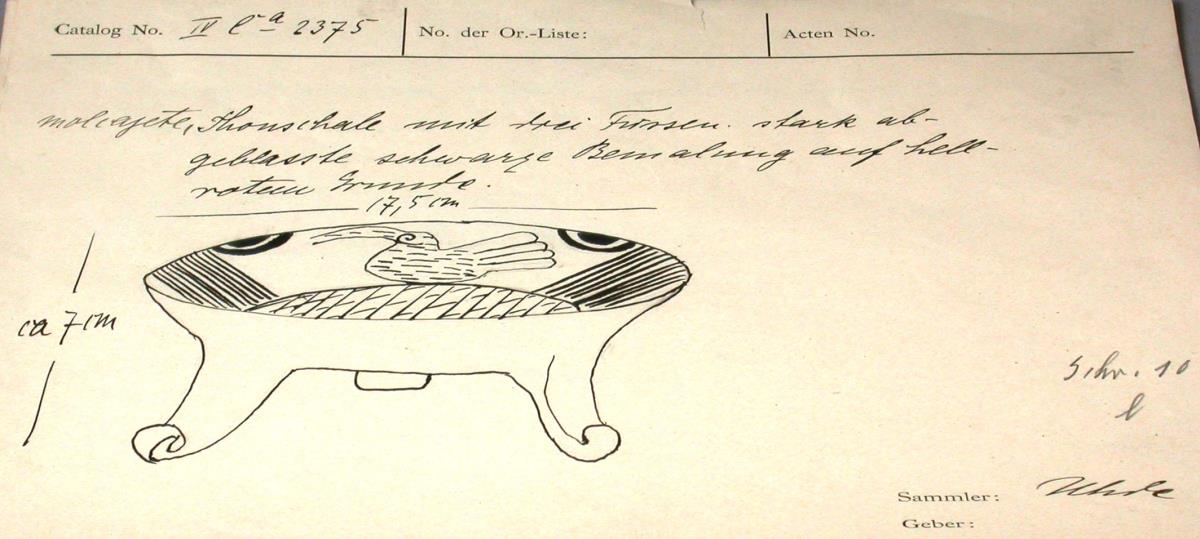 Catalog No. IV Ca 2375 No. der Or.-Liste: Acten No.
molcajete, Thonschale mit drei Füssen. stark ab-
geblasste schwarze Bemalung auf hell-
rotem Grunde.
17,5 cm
ca 7 cm
Schr. 10
l
Sammler: Uhde
Geber: